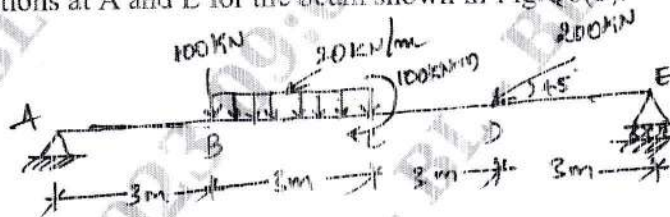 tions at A and E for the beam shown in Fig.
100KN
20KN/m
100KN-m
200KN
45°
A
E
B
D
3m
3m
3m
3m